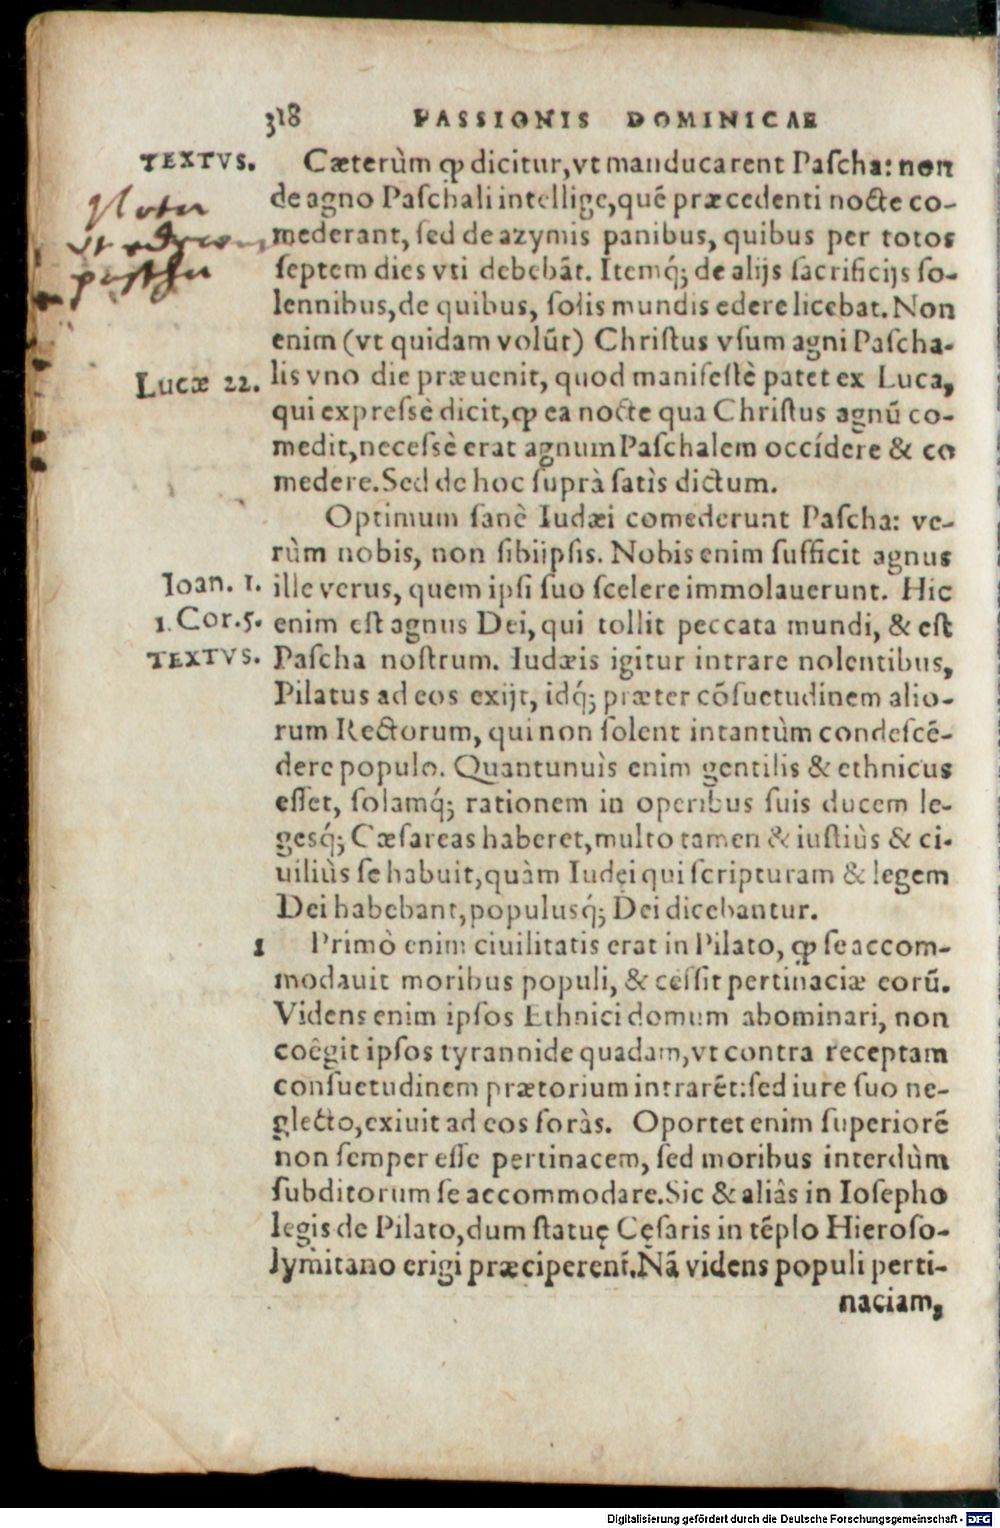 318 PASSIONIS DOMINICAE
TEXTVS. Cæterùm ꝙ dicitur, vt manducarent Paſcha: non
de agno Paſchali intellige, quē præcedenti nocte co-
mederant, ſed de azymis panibus, quibus per totos
ſeptem dies vti debebāt. Itemq́; de alijs ſacrificijs ſo-
lennibus, de quibus, ſolis mundis edere licebat. Non
enim (vt quidam volūt) Chriſtus vſum agni Paſcha-
Lucæ 22. lis vno die præuenit, quod manifeſtè patet ex Luca,
qui expreſsè dicit, ꝙ ea nocte qua Chriſtus agnū co-
medit, neceſsè erat agnum Paſchalem occídere & co
medere. Sed de hoc ſuprà ſatìs dictum.
Optimum ſanè Iudæi comederunt Paſcha: ve-
rùm nobis, non ſibiipſis. Nobis enim ſufficit agnus
Ioan. 1. ille verus, quem ipſi ſuo ſcelere immolauerunt. Hic
1. Cor. 5. enim eſt agnus Dei, qui tollit peccata mundi, & eſt
TEXTVS. Paſcha noſtrum. Iudæis igitur intrare nolentibus,
Pilatus ad eos exijt, idq́; præter cōſuetudinem alio-
rum Rectorum, qui non ſolent intantùm condeſcē-
dere populo. Quantunuìs enim gentilis & ethnicus
eſſet, ſolamq́; rationem in operibus ſuis ducem le-
gesq́; Cæſareas haberet, multo tamen & iuſtiùs & ci-
uiliùs ſe habuit, quàm Iudęi qui ſcripturam & legem
Dei habebant, populusq́; Dei dicebantur.
1 Primò enim ciuilitatis erat in Pilato, ꝙ ſe accom-
modauit moribus populi, & ceſſit pertinaciæ eorū.
Videns enim ipſos Ethnici domum abominari, non
coêgit ipſos tyrannide quadam, vt contra receptam
conſuetudinem prætorium intrarēt: ſed iure ſuo ne-
glecto, exiuit ad eos foràs. Oportet enim ſuperiorē
non ſemper eſſe pertinacem, ſed moribus interdùm
ſubditorum ſe accommodare. Sic & aliâs in Ioſepho
legis de Pilato, dum ſtatuę Cęſaris in tēplo Hieroſo-
lymitano erigi præciperent. Nā videns populi perti-
naciam,
Digitalisierung gefördert durch die Deutsche Forschungsgemeinschaft - DFG